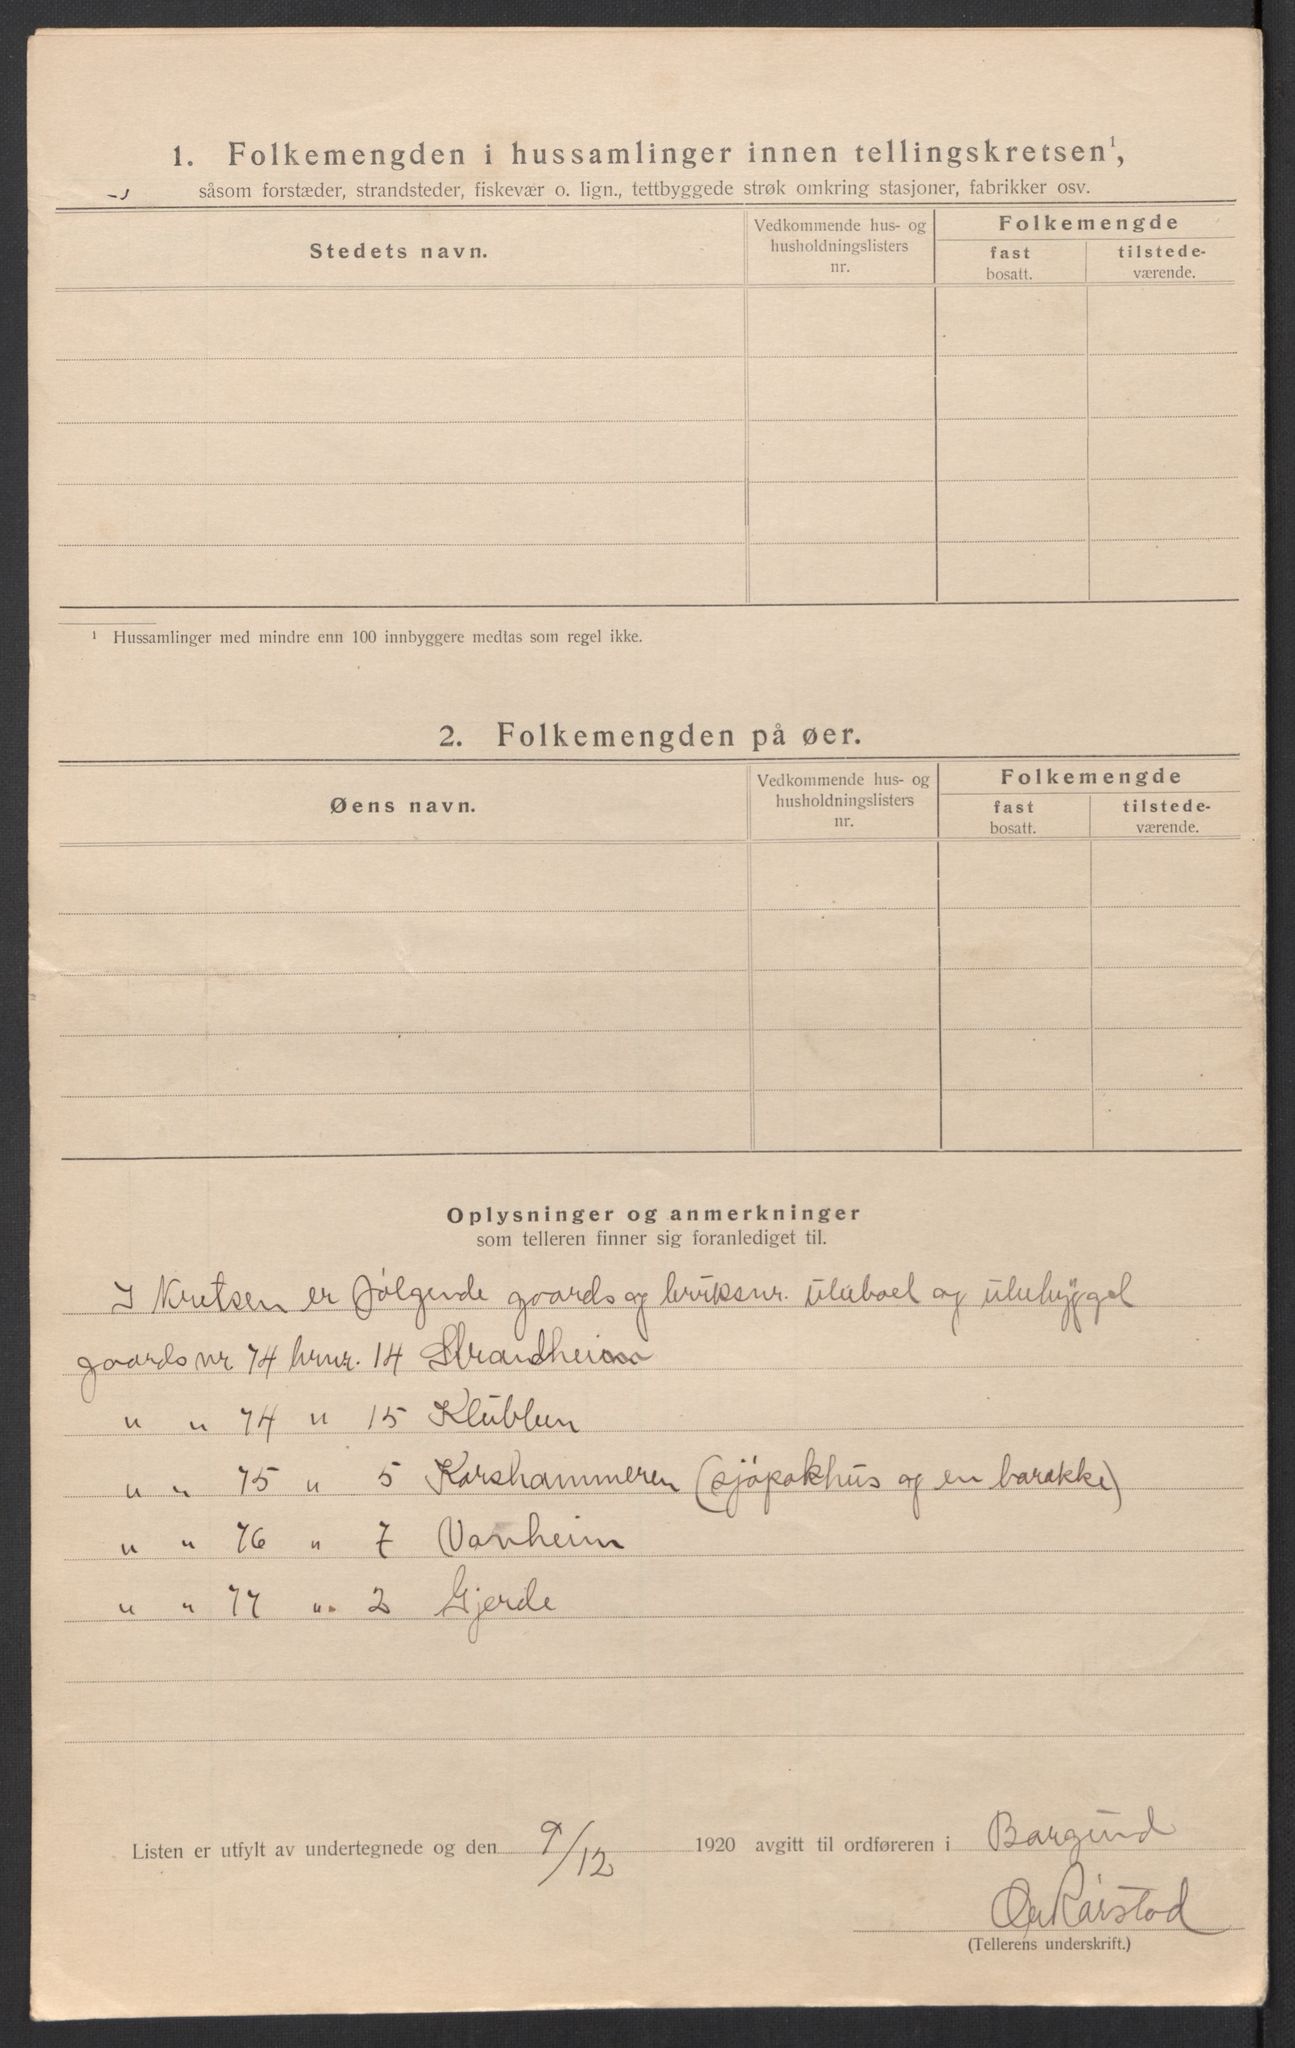 1. Folkemengden i hussamlinger innen tellingskretsen¹,
såsom forstæder, strandsteder, fiskevær o. lign., tettbyggede strøk omkring stasjoner, fabrikker osv.
Stedets navn.
Vedkommende hus- og
husholdningslisters
nr.
Folkemengde
fast
bosatt.
tilstede-
værende.
¹ Hussamlinger med mindre enn 100 innbyggere medtas som regel ikke.
2. Folkemengden på øer.
Øens navn.
Vedkommende hus- og
husholdningslisters
nr.
Folkemengde
fast
bosatt.
tilstede-
værende.
Oplysninger og anmerkninger
som telleren finner sig foranlediget til.
I Kretsen er følgende gaards og bruksnr. ubeboet og ubebygget
gaardsnr 74 brnr. 14 Strandheim
" " 74 " 15 Klubben
" " 75 " 5 Korshammeren (sjøpakhus og en barakke)
" " 76 " 7 Vanheim
" " 77 " 2 Gjerde
Listen er utfylt av undertegnede og den 9/12 1920 avgitt til ordføreren i Borgund
(Tellerens underskrift.)